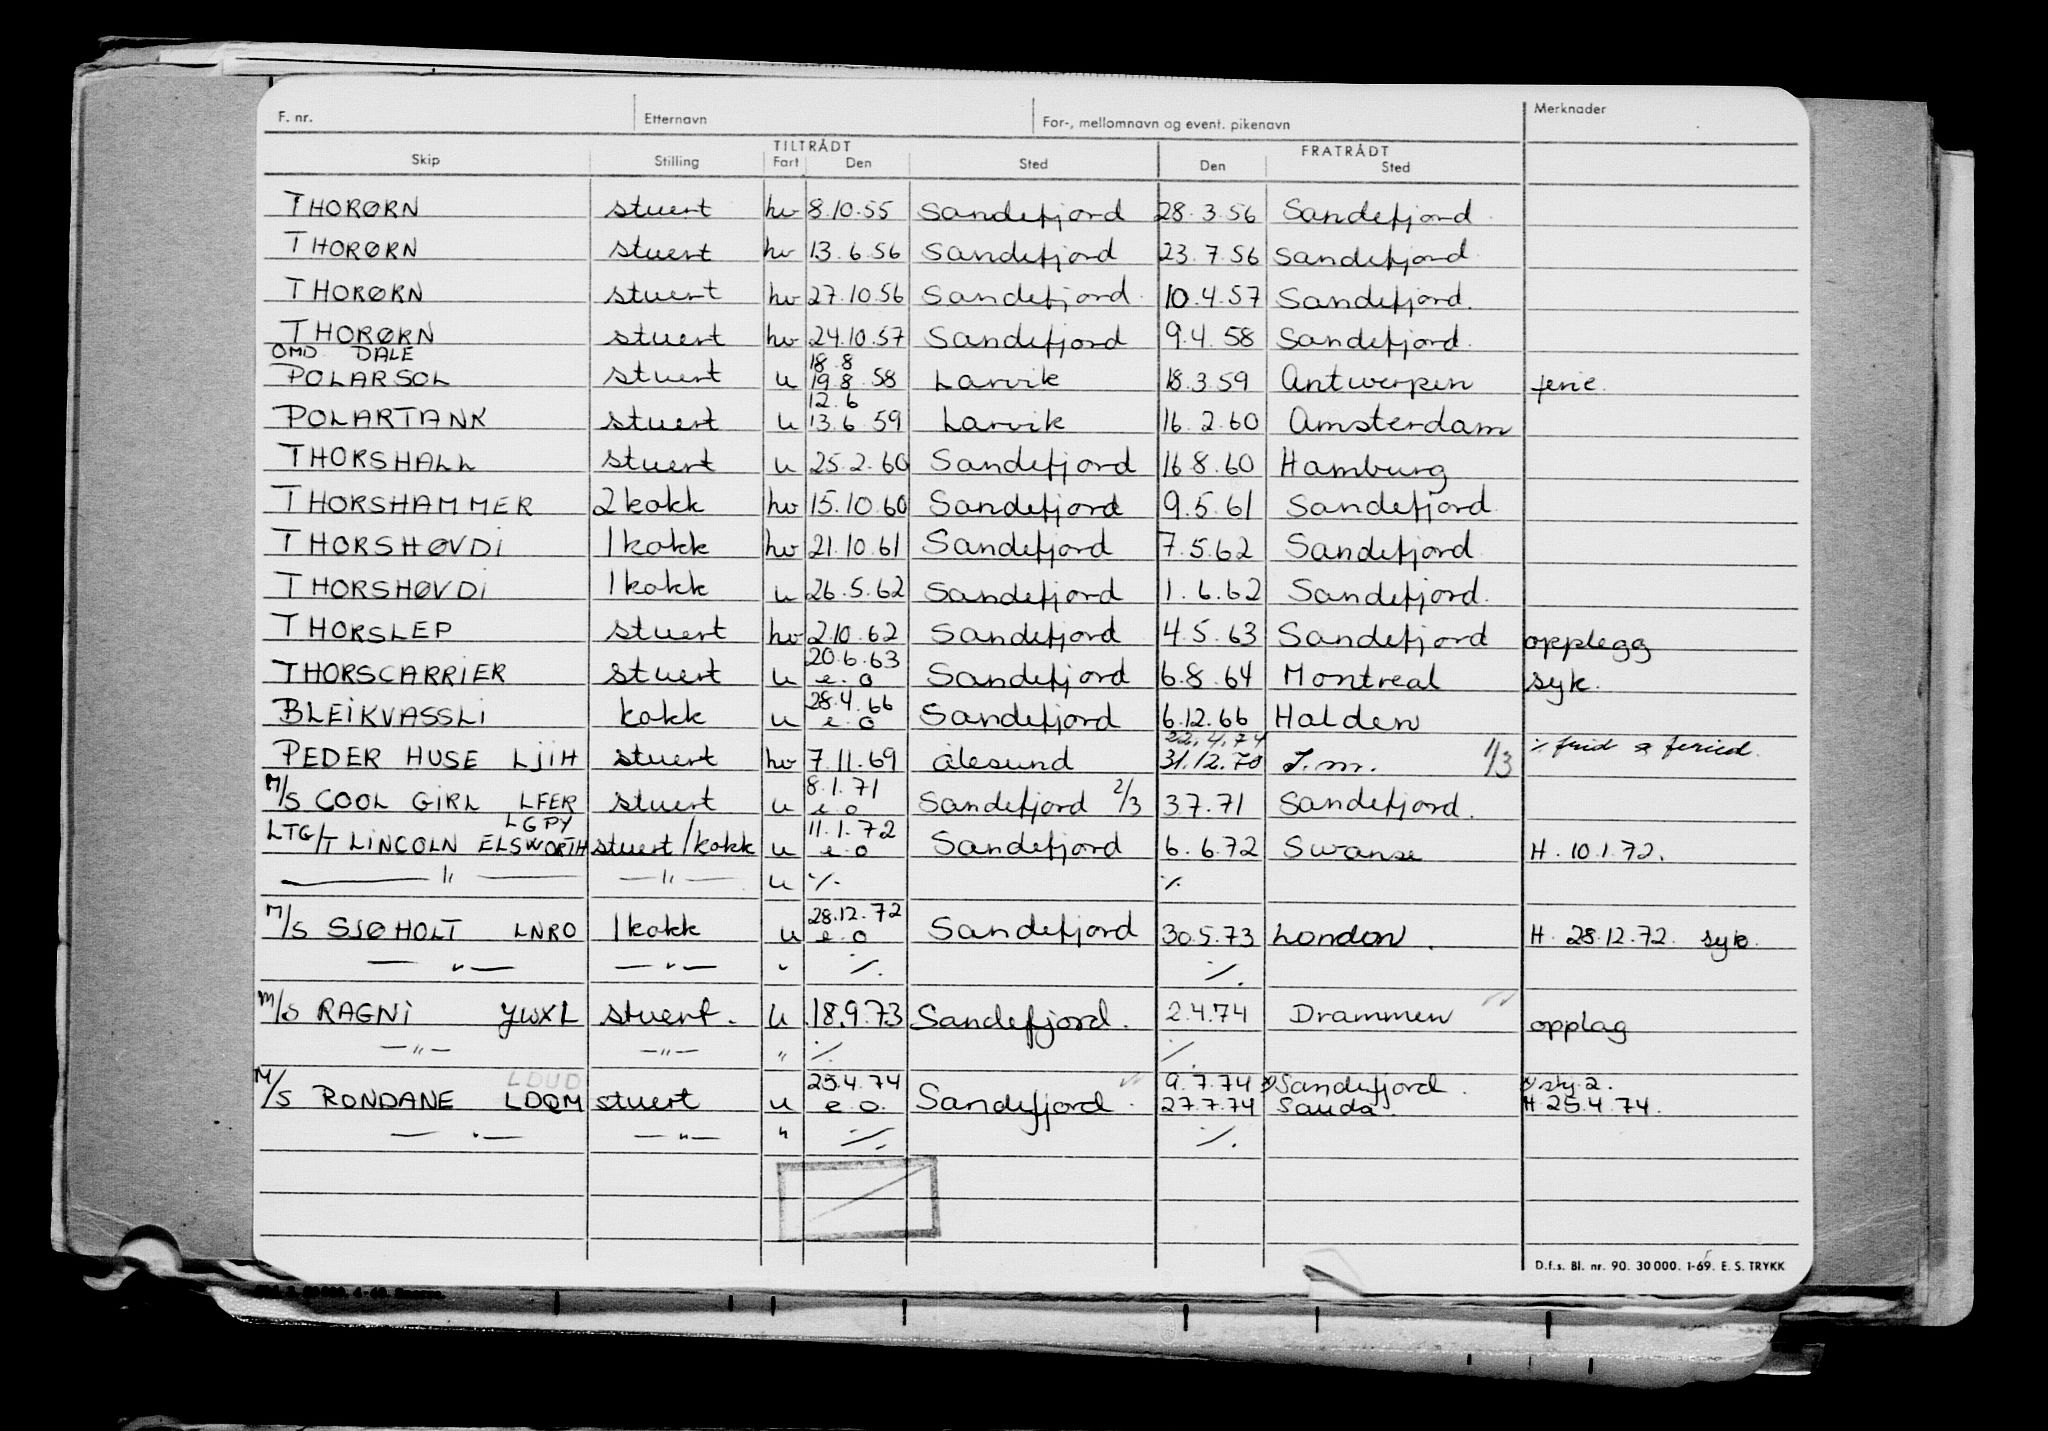 F. nr. Etternavn For-, mellomnavn og event. pikenavn Merknader
TILTRÅDT FRATRÅDT
Skip Stilling Fart Den Sted Den Sted
THORØRN stuert hv 8.10.55 Sandefjord 28.3.56 Sandefjord
THORØRN stuert hv 13.6.56 Sandefjord 23.7.56 Sandefjord
THORØRN stuert hv 27.10.56 Sandefjord 10.4.57 Sandefjord.
THORØRN stuert hv 24.10.57 Sandefjord 9.4.58 Sandefjord.
OMD. DALE 18.8
POLARSOL stuert u 19.8.58 Larvik 18.3.59 Antwerpen ferie.
12.6
POLARTANK stuert u 13.6.59 Larvik 16.2.60 Amsterdam
THORSHALL stuert u 25.2.60 Sandefjord 16.8.60 Hamburg
THORSHAMMER 2 kokk hv 15.10.60 Sandefjord 9.5.61 Sandefjord
THORSHØVDI 1 kokk hv 21.10.61 Sandefjord 7.5.62 Sandefjord
THORSHØVDI 1 kokk u 26.5.62 Sandefjord 1.6.62 Sandefjord.
THORSLEP stuert hv 2.10.62 Sandefjord 4.5.63 Sandefjord opplegg
20.6.63
THORSCARRIER stuert u e.o Sandefjord 6.8.64 Montreal syk.
28.4.66
BLEIKVASSLI kokk u e.o Sandefjord 6.12.66 Halden
22.4.74
PEDER HUSE LJIH stuert hv 7.11.69 ålesund 31.12.70 J.m. 1/3 ·/. frid a feried.
8.1.71
M/S COOL GIRL LFER stuert u e.o Sandefjord 2/3 3.7.71 Sandefjord.
LGPY 11.1.72
LTG/T LINCOLN ELSWORTH stuert/kokk u e.o Sandefjord 6.6.72 Swanse H. 10.1.72.
— " — — " — u ·/. ·/.
28.12.72
M/S SJØHOLT LNRO 1 kokk u e.o Sandefjord 30.5.73 London. H. 28.12.72. syk.
— " — — " — " ·/. ·/.
M/S RAGNI JWXL stuert. u 18.9.73 Sandefjord. 2.4.74 Drammen opplag
— " — — " — " ·/. ·/.
LDUD 25.4.74 9.7.74 Sandefjord. 2.
M/S RONDANE LDQM stuert u e.o. Sandefjord 27.7.74 Sauda H 25.4.74.
— " — — " — " ·/. ·/.
D.f.s. Bl. nr. 90. 30 000. 1-69. E. S. TRYKK